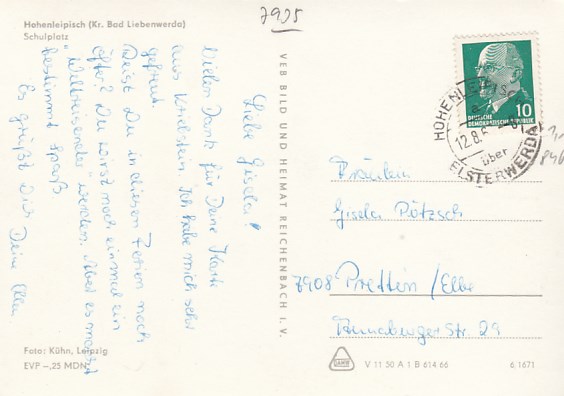 7905
Hohenleipisch (Kr. Bad Liebenwerda)
Schulplatz
Liebe Gisela!
Vielen Dank für Deine Karte
aus Kriebstein. Ich habe mich sehr
gefreut.
Reist Du in diesen Ferien noch
öfter? Du wirst noch einmal ein
"Weltreisender" werden. Aber es macht
bestimmt Spaß
Es grüßt Dich Deine
Foto: Kühn, Leipzig
EVP –,25 MDN
VEB BILD UND HEIMAT REICHENBACH I. V.
10
DEUTSCHE
DEMOKRATISCHE REPUBLIK
HOHENLEIPISCH
12.8.
über
ELSTERWERDA
Fräulein
Gisela Pötzsch
7908 Prettin /Elbe
Annaburger Str. 29
V 11 50 A 1 B 614 66
6/1671